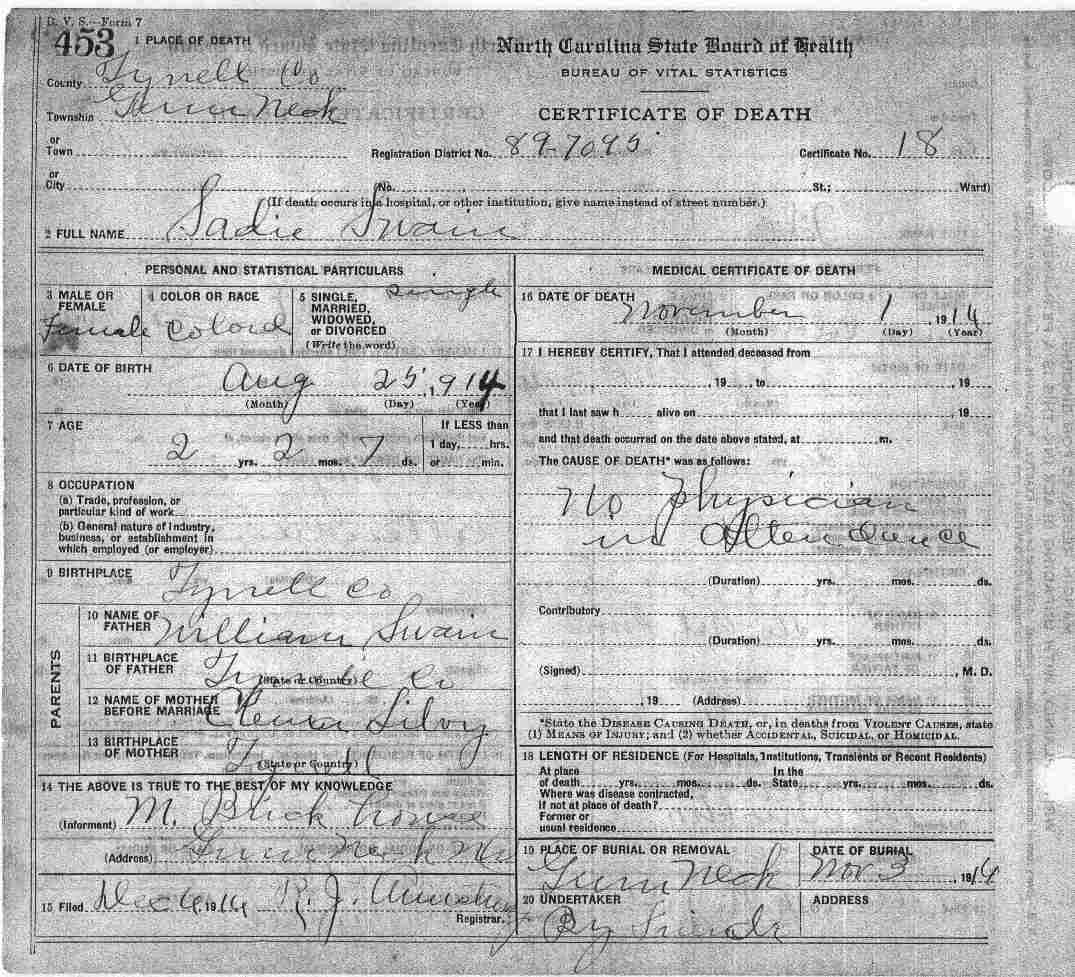 B. V. S.—Form 7
453
1 PLACE OF DEATH
North Carolina State Board of Health
BUREAU OF VITAL STATISTICS
CERTIFICATE OF DEATH
County Tyrrell Co
Township Gum Neck
or Town
Registration District No. 89-7095
Certificate No. 18
or City
No.
St.;
Ward)
(If death occurs in a hospital, or other institution, give name instead of street number.)
2 FULL NAME Sadie Swain
PERSONAL AND STATISTICAL PARTICULARS
3 MALE OR FEMALE
Female
4 COLOR OR RACE
Colord
5 SINGLE, MARRIED, WIDOWED, or DIVORCED
(Write the word)
single
6 DATE OF BIRTH
Aug 25, 914
(Month) (Day) (Year)
7 AGE
2 yrs. 2 mos. 7 ds.
If LESS than
1 day, hrs.
or min.
8 OCCUPATION
(a) Trade, profession, or
particular kind of work
(b) General nature of industry,
business, or establishment in
which employed (or employer)
9 BIRTHPLACE
Tyrrell Co
PARENTS
10 NAME OF FATHER
William Swain
11 BIRTHPLACE OF FATHER
(State or Country)
Co
12 NAME OF MOTHER BEFORE MARRIAGE
13 BIRTHPLACE OF MOTHER
(State or Country)
Tyrrell
14 THE ABOVE IS TRUE TO THE BEST OF MY KNOWLEDGE
(Informent) M.
(Address) Gum Neck
15 Filed Dec 4, 1914 R. J.
Registrar.
MEDICAL CERTIFICATE OF DEATH
16 DATE OF DEATH
November 1, 1914
(Month) (Day) (Year)
17 I HEREBY CERTIFY, That I attended deceased from
, 19 , to , 19
that I last saw h alive on , 19
and that death occurred on the date above stated, at m.
The CAUSE OF DEATH* was as follows:
No Physician
in attendence
(Duration) yrs. mos. ds.
Contributory
(Duration) yrs. mos. ds.
(Signed) , M. D.
, 19 (Address)
*State the DISEASE CAUSING DEATH, or, in deaths from VIOLENT CAUSES, state
(1) MEANS OF INJURY; and (2) whether ACCIDENTAL, SUICIDAL, or HOMICIDAL.
18 LENGTH OF RESIDENCE (For Hospitals, Institutions, Transients or Recent Residents)
At place of death yrs. mos. ds. In the State yrs. mos. ds.
Where was disease contracted,
if not at place of death?
Former or
usual residence
19 PLACE OF BURIAL OR REMOVAL
Gum Neck
DATE OF BURIAL
Nov 3, 1914
20 UNDERTAKER
By Friends
ADDRESS